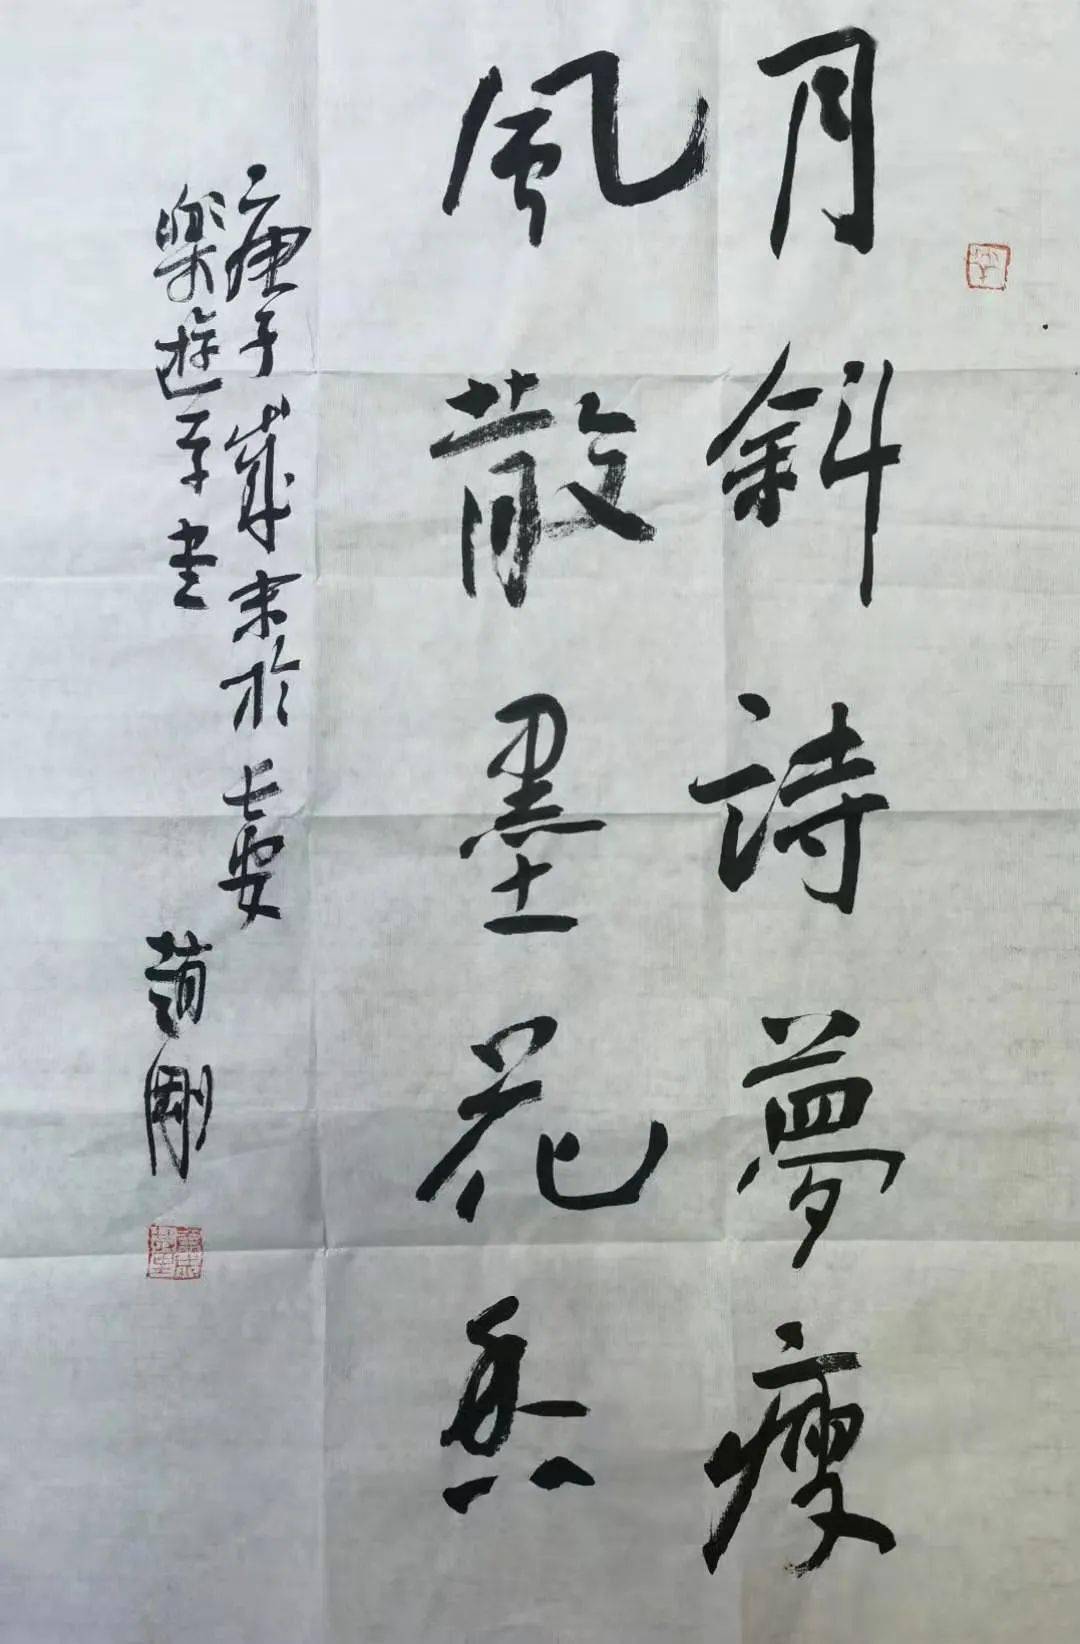 月斜詩夢瘦
風散墨花香
庚子歲末於長安
樂遊原書 趙剛